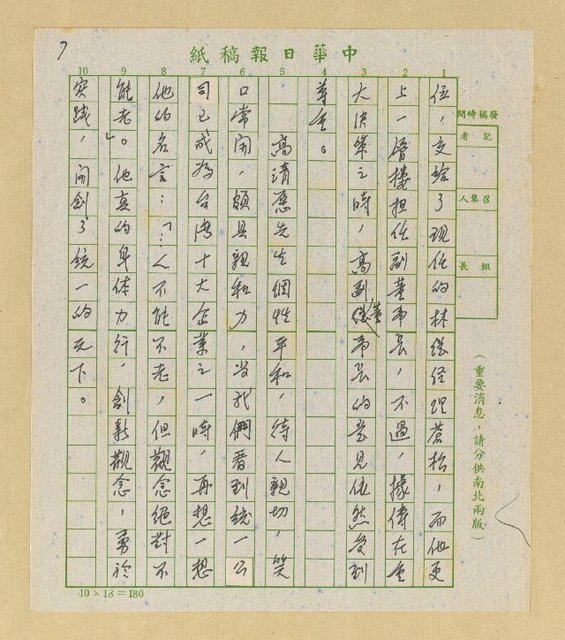 7
中華日報稿紙
發稿時間
記者
召集人
組長
(重要消息,請分供南北兩版)
1 2 3 4 5 6 7 8 9 10
位,交給了現任的林總經理蒼松,而他更
上一層樓担任副董事長,不過,據傳在重
大決策之時,高副董事長的意見依然受到
尊重。
高清愿先生個性平和,待人親切,笑
口常開,頗具親和力,當我們看到統一公
司已成為台灣十大企業之一時,再想一想
他的名言:「…人不能不老,但觀念絕對不
能老」。他真的身体力行,創新觀念,勇於
實踐,開創了統一的天下。
10×18=180